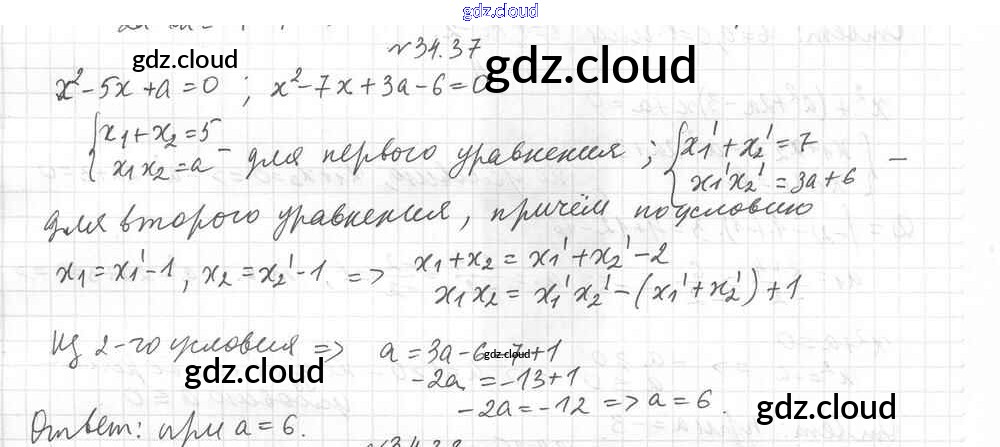 gdz.cloud
№34.37
gdz.cloud
x² - 5x + a = 0 ; x² - 7x + 3a - 6 = 0
gdz.cloud
{x₁ + x₂ = 5
x₁x₂ = a - для первого уравнения; {x₁' + x₂' = 7
x₁'x₂' = 3a + 6 -
для второго уравнения, причём по условию
x₁ = x₁' - 1, x₂ = x₂' - 1 => x₁ + x₂ = x₁' + x₂' - 2
x₁x₂ = x₁'x₂' - (x₁' + x₂') + 1
Из 2-го условия => a = 3a - 6 - 7 + 1
gdz.cloud
gdz.cloud
-2a = -13 + 1
-2a = -12 => a = 6.
gdz.cloud
Ответ: при a = 6.